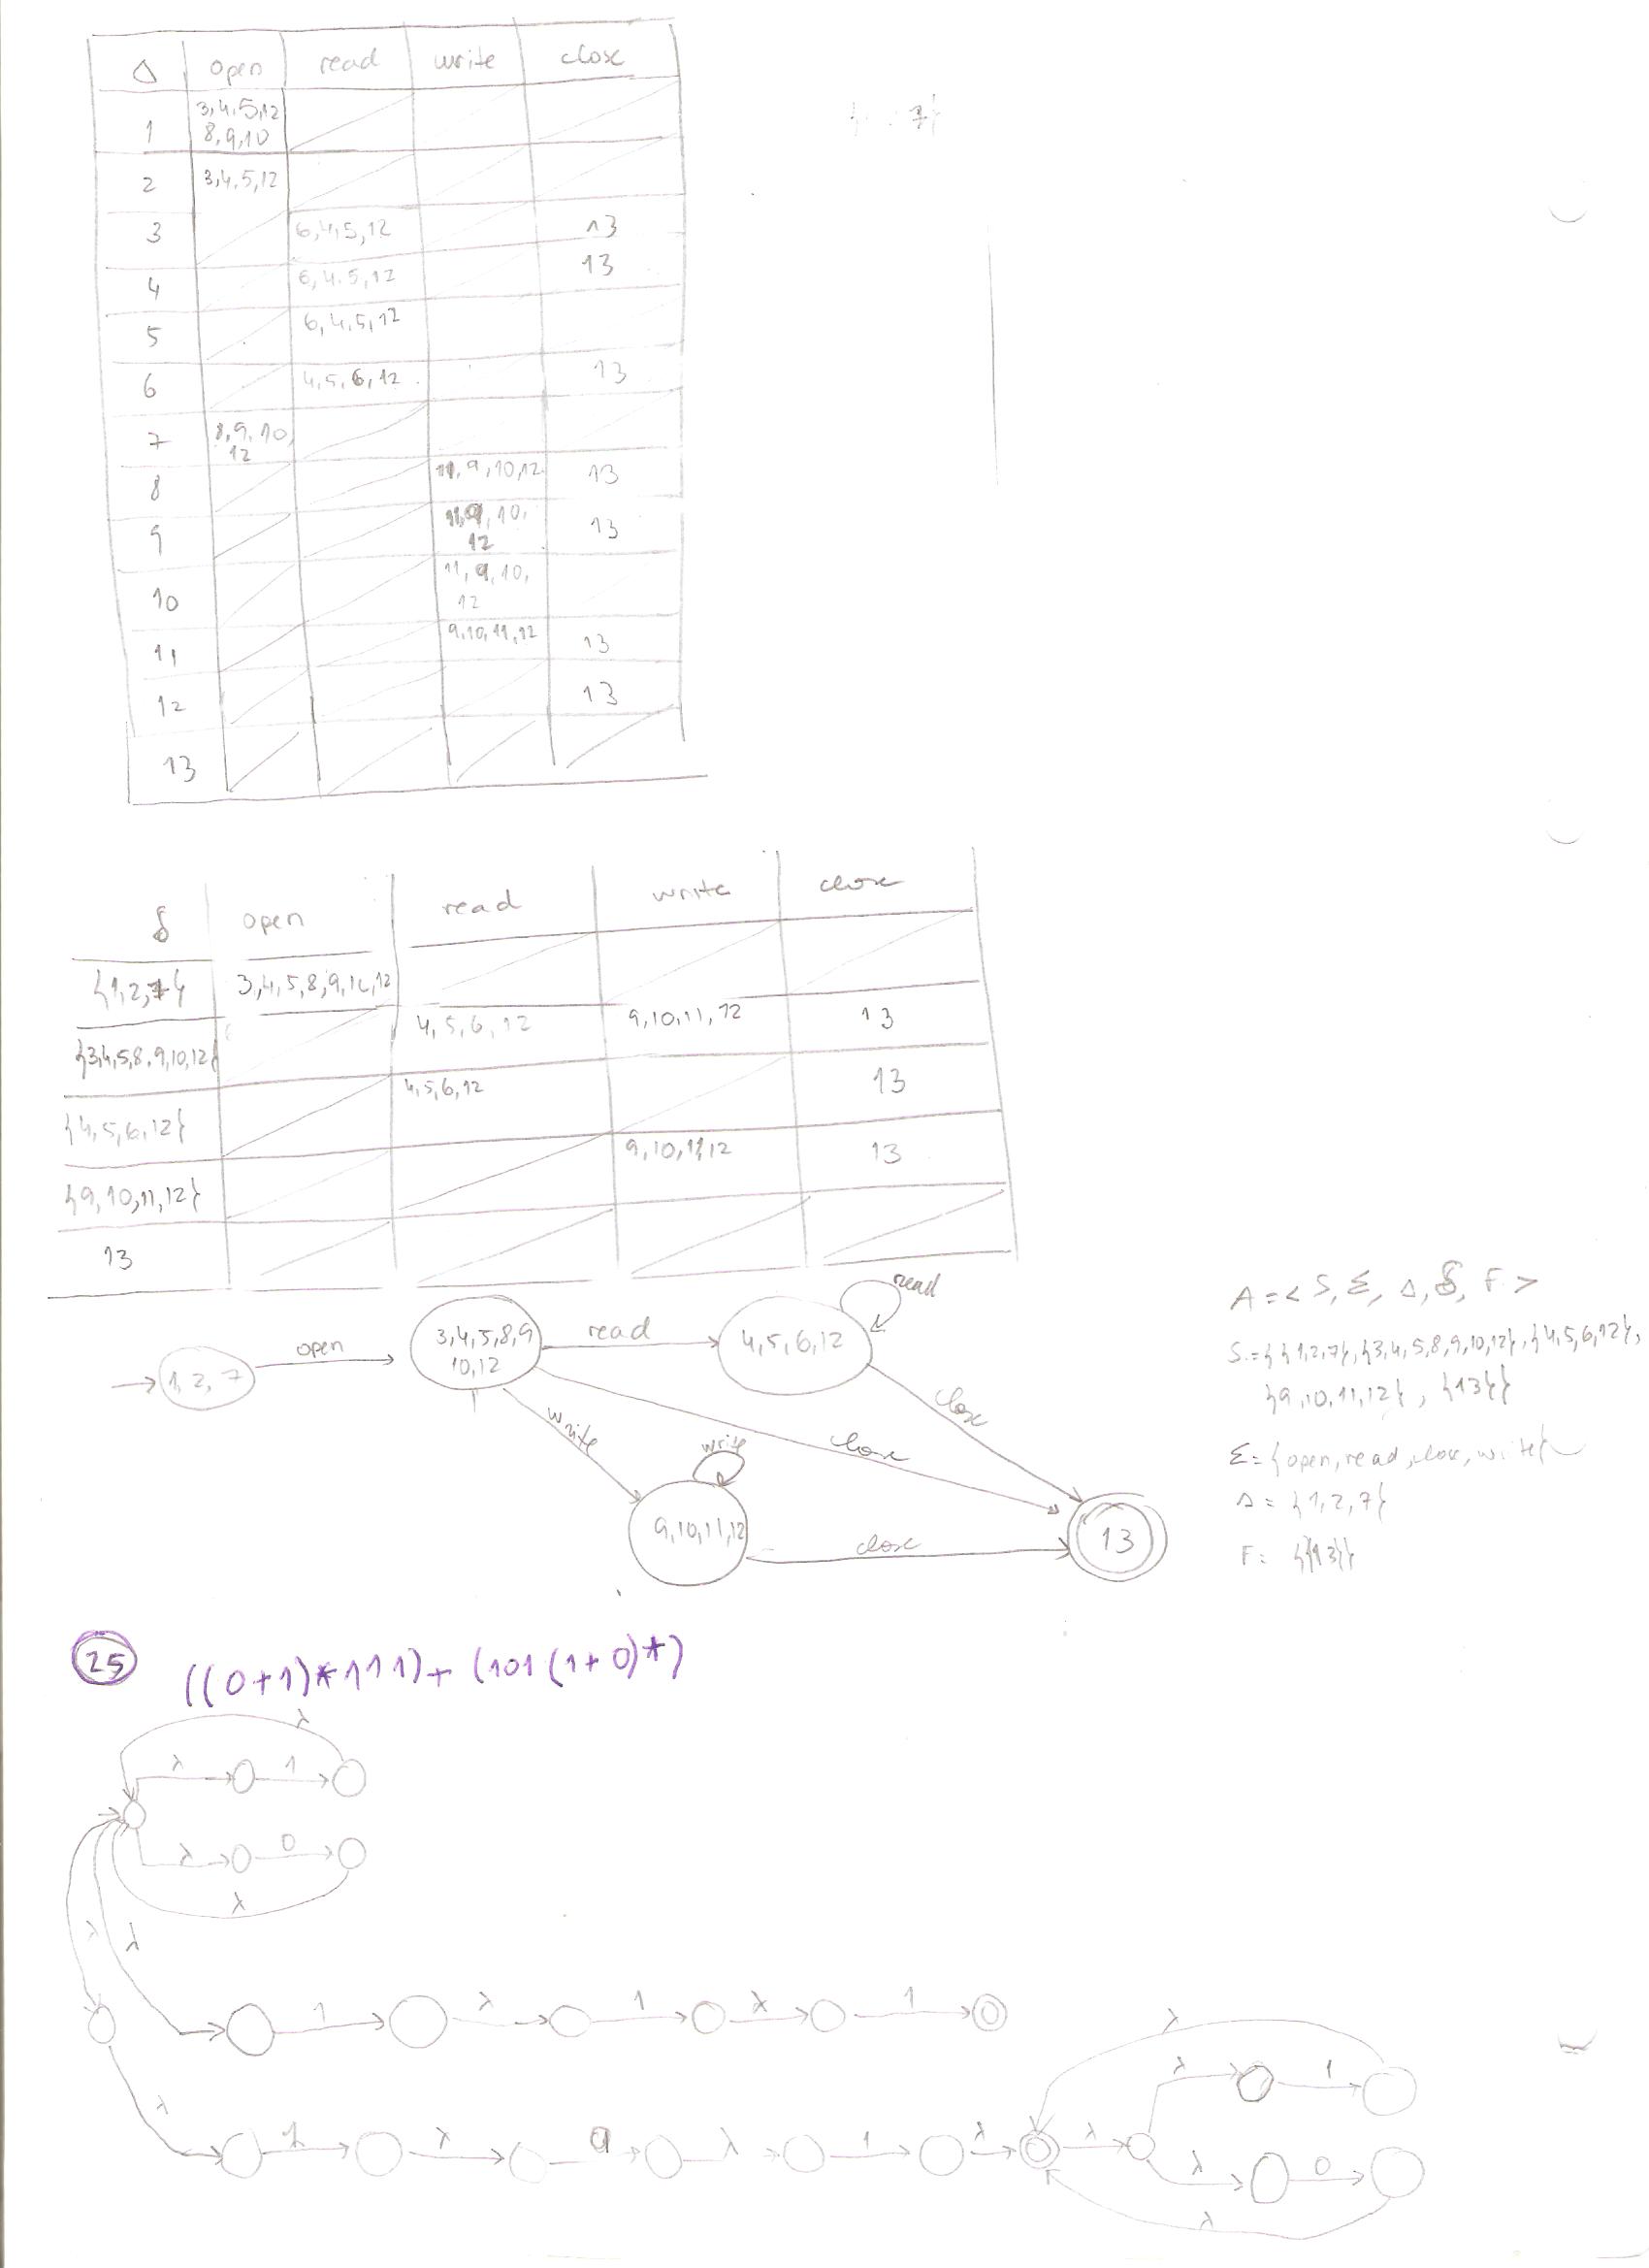 Δ open read write close
1 3,4,5,12 8,9,10
2 3,4,5,12
3 6,4,5,12 13
4 6,4,5,12 13
5 6,4,5,12
6 4,5,6,12 13
7 8,9,10, 12
8 11,9,10,12 13
9 11,9,10, 12 13
10 11,9,10, 12
11 9,10,11,12 13
12 13
13
δ open read write close
{1,2,7} 3,4,5,8,9,10,12
{3,4,5,8,9,10,12} 4,5,6,12 9,10,11,12 13
{4,5,6,12} 4,5,6,12 13
{9,10,11,12} 9,10,11,12 13
13
1,2,7
open
3,4,5,8,9
10,12
read
4,5,6,12
read
close
write
close
write
9,10,11,12
close
13
A=< S, Σ, Δ, δ, F >
S={{1,2,7},{3,4,5,8,9,10,12},{4,5,6,12},
{9,10,11,12}, {13}}
Σ={open,read,close,write}
Δ= {1,2,7}
F= {{13}}
25 ((0+1)*111)+(101(1+0)*)
λ
λ 1
λ 0
λ
λ λ
1 λ 1 λ 1
λ
λ 1
λ 1 λ 0 λ 1 λ λ
λ 0
λ